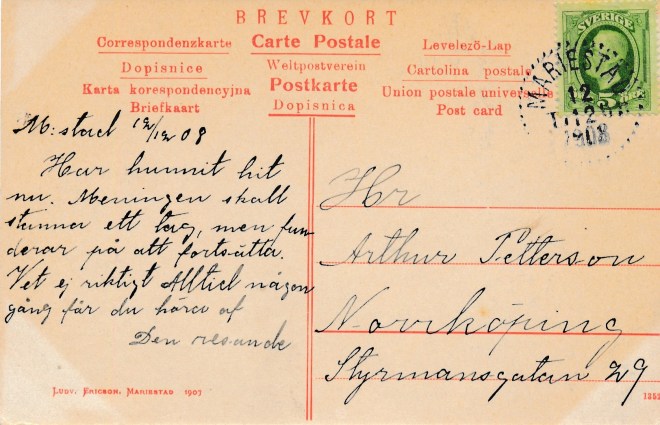 BREVKORT
Correspondenzkarte
Carte Postale
Levelezö-Lap
Dopisnice
Weltpostverein
Cartolina postale
Karta korespondencyjna
Postkarte
Union postale universelle
Briefkaart
Dopisnica
Post card
SVERIGE
MARIESTAD
12
12
1908
M:stad 12/12 08
Har hunnit hit
nu. Meningen skall
stanna ett tag, men fun
derar på att fortsätta.
Vet ej riktigt Alltid någon
gång får du höra af
Den resande
Hr
Arthur Petterson
Norrköping
Styrmansgatan 29
Ludv. Ericson, Mariestad 1907